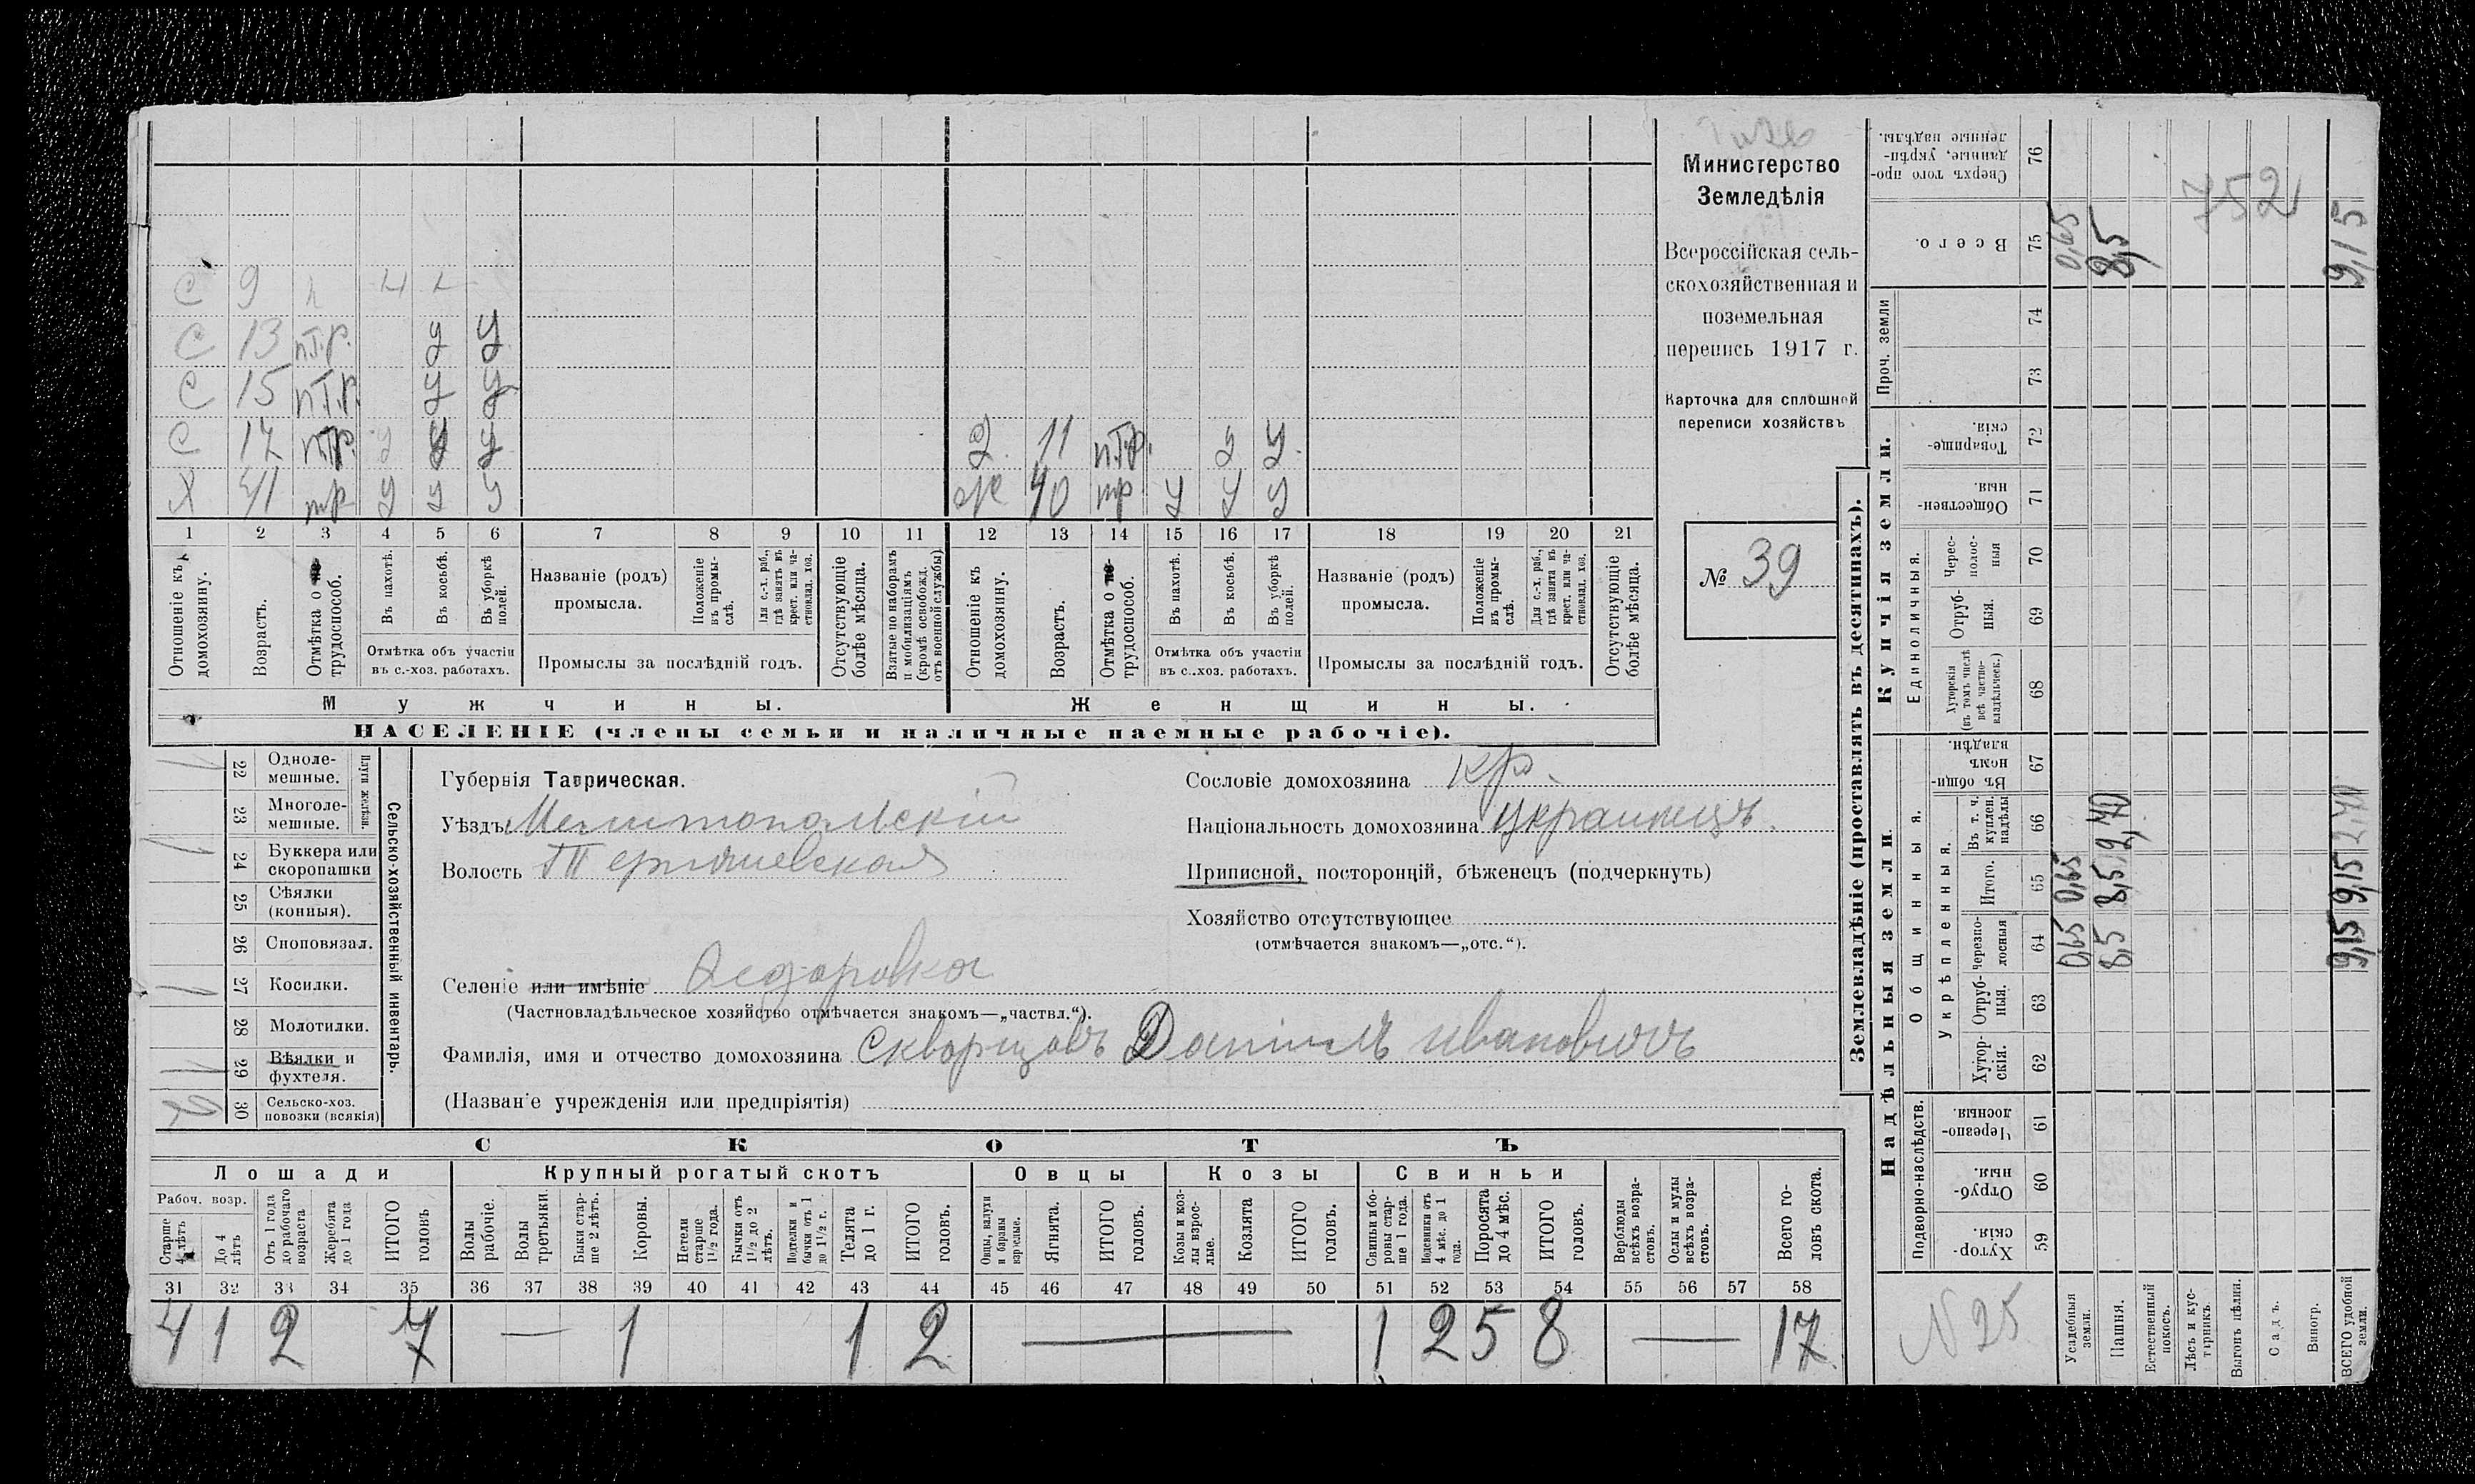 Министерство
Земледѣлія
Всероссійская сель-
скохозяйственная и
поземельная
перепись 1917 г.
Карточка для сплошной
переписи хозяйствъ
№ 39
С 9 н
С 13 п.т.р. у у
С 15 п.т.р. у у
С 17 п.т.р. у у у
Х 41 тр у у у
Д. 11 п.т.р. у у
ж 40 тр у у у
1 2 3 4 5 6 7 8 9 10 11 12 13 14 15 16 17 18 19 20 21
Отношеніе къ домохозяину.
Возрастъ.
Отмѣтка о не- трудоспособ.
Въ пахотѣ.
Въ косьбѣ.
Въ уборкѣ полей.
Отмѣтка объ участіи
въ с.-хоз. работахъ.
Названіе (родъ)
промысла.
Положеніе въ промы- слѣ.
Для с.-х. раб., гдѣ занятъ въ крест. или ча- стновлад. хоз.
Промыслы за послѣдній годъ.
Отсутствующіе болѣе мѣсяца.
Взятые по наборамъ и мобилизаціямъ (кромѣ освобожд. отъ военной службы)
Отношеніе къ домохозяину.
Возрастъ.
Отмѣтка о не- трудоспособ.
Въ пахотѣ.
Въ косьбѣ.
Въ уборкѣ полей.
Отмѣтка объ участіи
въ с..хоз. работахъ.
Названіе (родъ)
промысла.
Положеніе въ промы- слѣ.
Для с.-х. раб., гдѣ занята въ крест. или ча- стновлад. хоз.
Промыслы за послѣдній годъ.
Отсутствующіе болѣе мѣсяца.
Мужчины.
Женщины.
НАСЕЛЕНІЕ (члены семьи и наличные наемные рабочіе).
22 Одноле- мешные.
23 Многоле- мешные.
Плуги желѣзн.
24 Буккера или скоропашки
25 Сѣялки (конныя).
26 Сноповязал.
27 Косилки.
28 Молотилки.
29 Вѣялки и фухтеля.
30 Сельско-хоз. повозки (всякія)
Сельско-хозяйственный инвентарь.
Губернія Таврическая.
Уѣздъ Мелитопольскій
Волость
Селеніе или имѣніе Федоровка
(Частновладѣльческое хозяйство отмѣчается знакомъ—„частвл.“).
Фамилія, имя и отчество домохозяина Скворцовъ Данiилъ Ивановичъ
(Названіе учрежденія или предпріятія)
Сословіе домохозяина кр.
Національность домохозяина украинецъ.
Приписной, посторонній, бѣженецъ (подчеркнуть)
Хозяйство отсутствующее
(отмѣчается знакомъ—„отс.“).
СКОТЪ
Лошади
Крупный рогатый скотъ
Овцы
Козы
Свиньи
Рабоч. возр.
Старше 4 лѣтъ
До 4 лѣтъ
Отъ 1 года до рабочаго возраста
Жеребята до 1 года
ИТОГО головъ
Волы рабочіе.
Волы третьяки.
Быки стар- ше 2 лѣтъ.
Коровы.
Нетели старше 1½ года.
Бычки отъ 1½ до 2 лѣтъ.
Подтелки и бычки отъ 1 до 1½ г.
Телята до 1 г.
ИТОГО головъ.
Овцы, валухи и бараны взрослые.
Ягнята.
ИТОГО головъ.
Козы и коз- лы взрос- лые.
Козлята
ИТОГО головъ.
Свиньи и бо- ровы стар- ше 1 года.
Подсвинки отъ 4 мѣс. до 1 года.
Поросята до 4 мѣс.
ИТОГО головъ.
Верблюды всѣхъ возра- стовъ.
Ослы и мулы всѣхъ возра- стовъ.
Всего го- ловъ скота.
31 32 33 34 35 36 37 38 39 40 41 42 43 44 45 46 47 48 49 50 51 52 53 54 55 56 57 58
4 1 2 7 — 1 1 2 — 1 2 5 8 — 17
Землевладѣніе (проставлять въ десятинахъ).
Надѣльныя земли.
Купчія земли.
Проч. земли
Подворно-наслѣдств.
Общинныя.
Укрѣпленныя.
Единоличныя.
59 Хутор- скія.
60 Отруб- ныя.
61 Черезпо- лосныя.
62 Хутор- скія.
63 Отруб- ныя.
64 Черезпо- лосныя
65 Итого.
66 Въ т. ч. куплен. надѣлы
67 Въ общи- номъ владѣн.
68 Хуторскія (въ томъ числѣ всѣ частно- владѣльческ.)
69 Отруб- ныя.
70 Черес- полос- ныя
71 Обществен- ныя.
72 Товарище- скія.
73
74
75 Всего.
76 Сверхъ того про- данные, укрѣп- ленные надѣлы.
N 25
Усадебныя земли. 0,65 0,65 0,65
Пашня. 8,5 8,5 2,40 8,5
Естественный покосъ.
Лѣсъ и кус- тарникъ.
Выгонъ цѣлин.
Садъ.
Виногр.
ВСЕГО удобной земли. 9,15 9,15 2,40 9,15
752